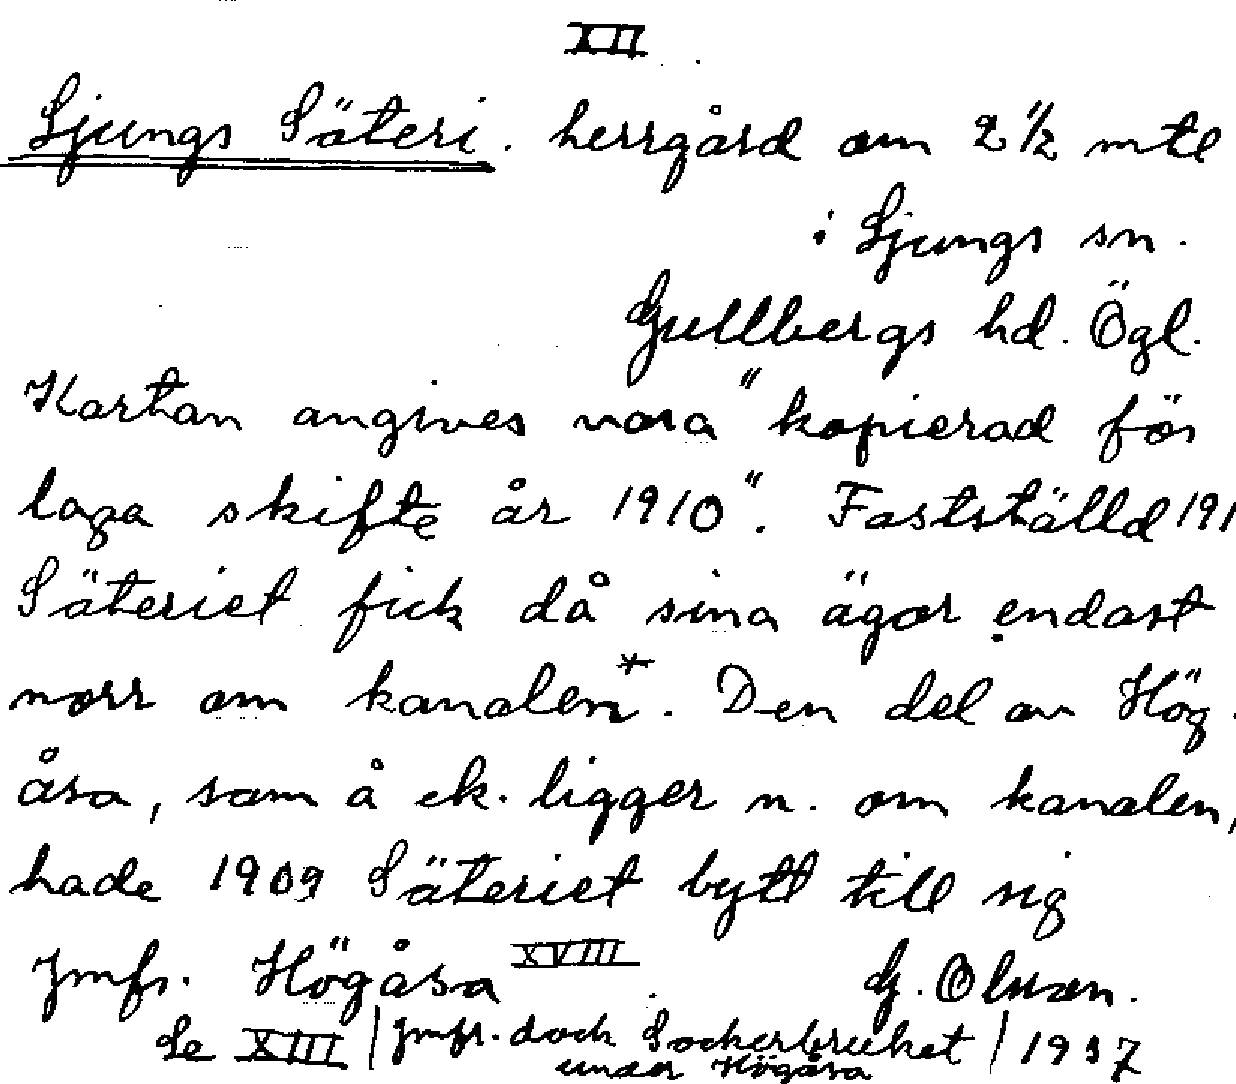 XII
Ljungs Säteri. herrgård om 2 1/2 mtl
i Ljungs sn.
Gullbergs hd. Ögl.
Kartan angives vara "kopierad för
laga skifte år 1910". Fastställd 191
Säteriet fick då sina ägor endast
norr om kanalen*. Den del av Hög-
åsa, som å ek. ligger n. om kanalen,
hade 1909 Säteriet bytt till sig
Jmfr. Högåsa XVIII G. Olsson.
Se XIII | Jmfr. dock Sockerbruket | 1937
under Högåsa